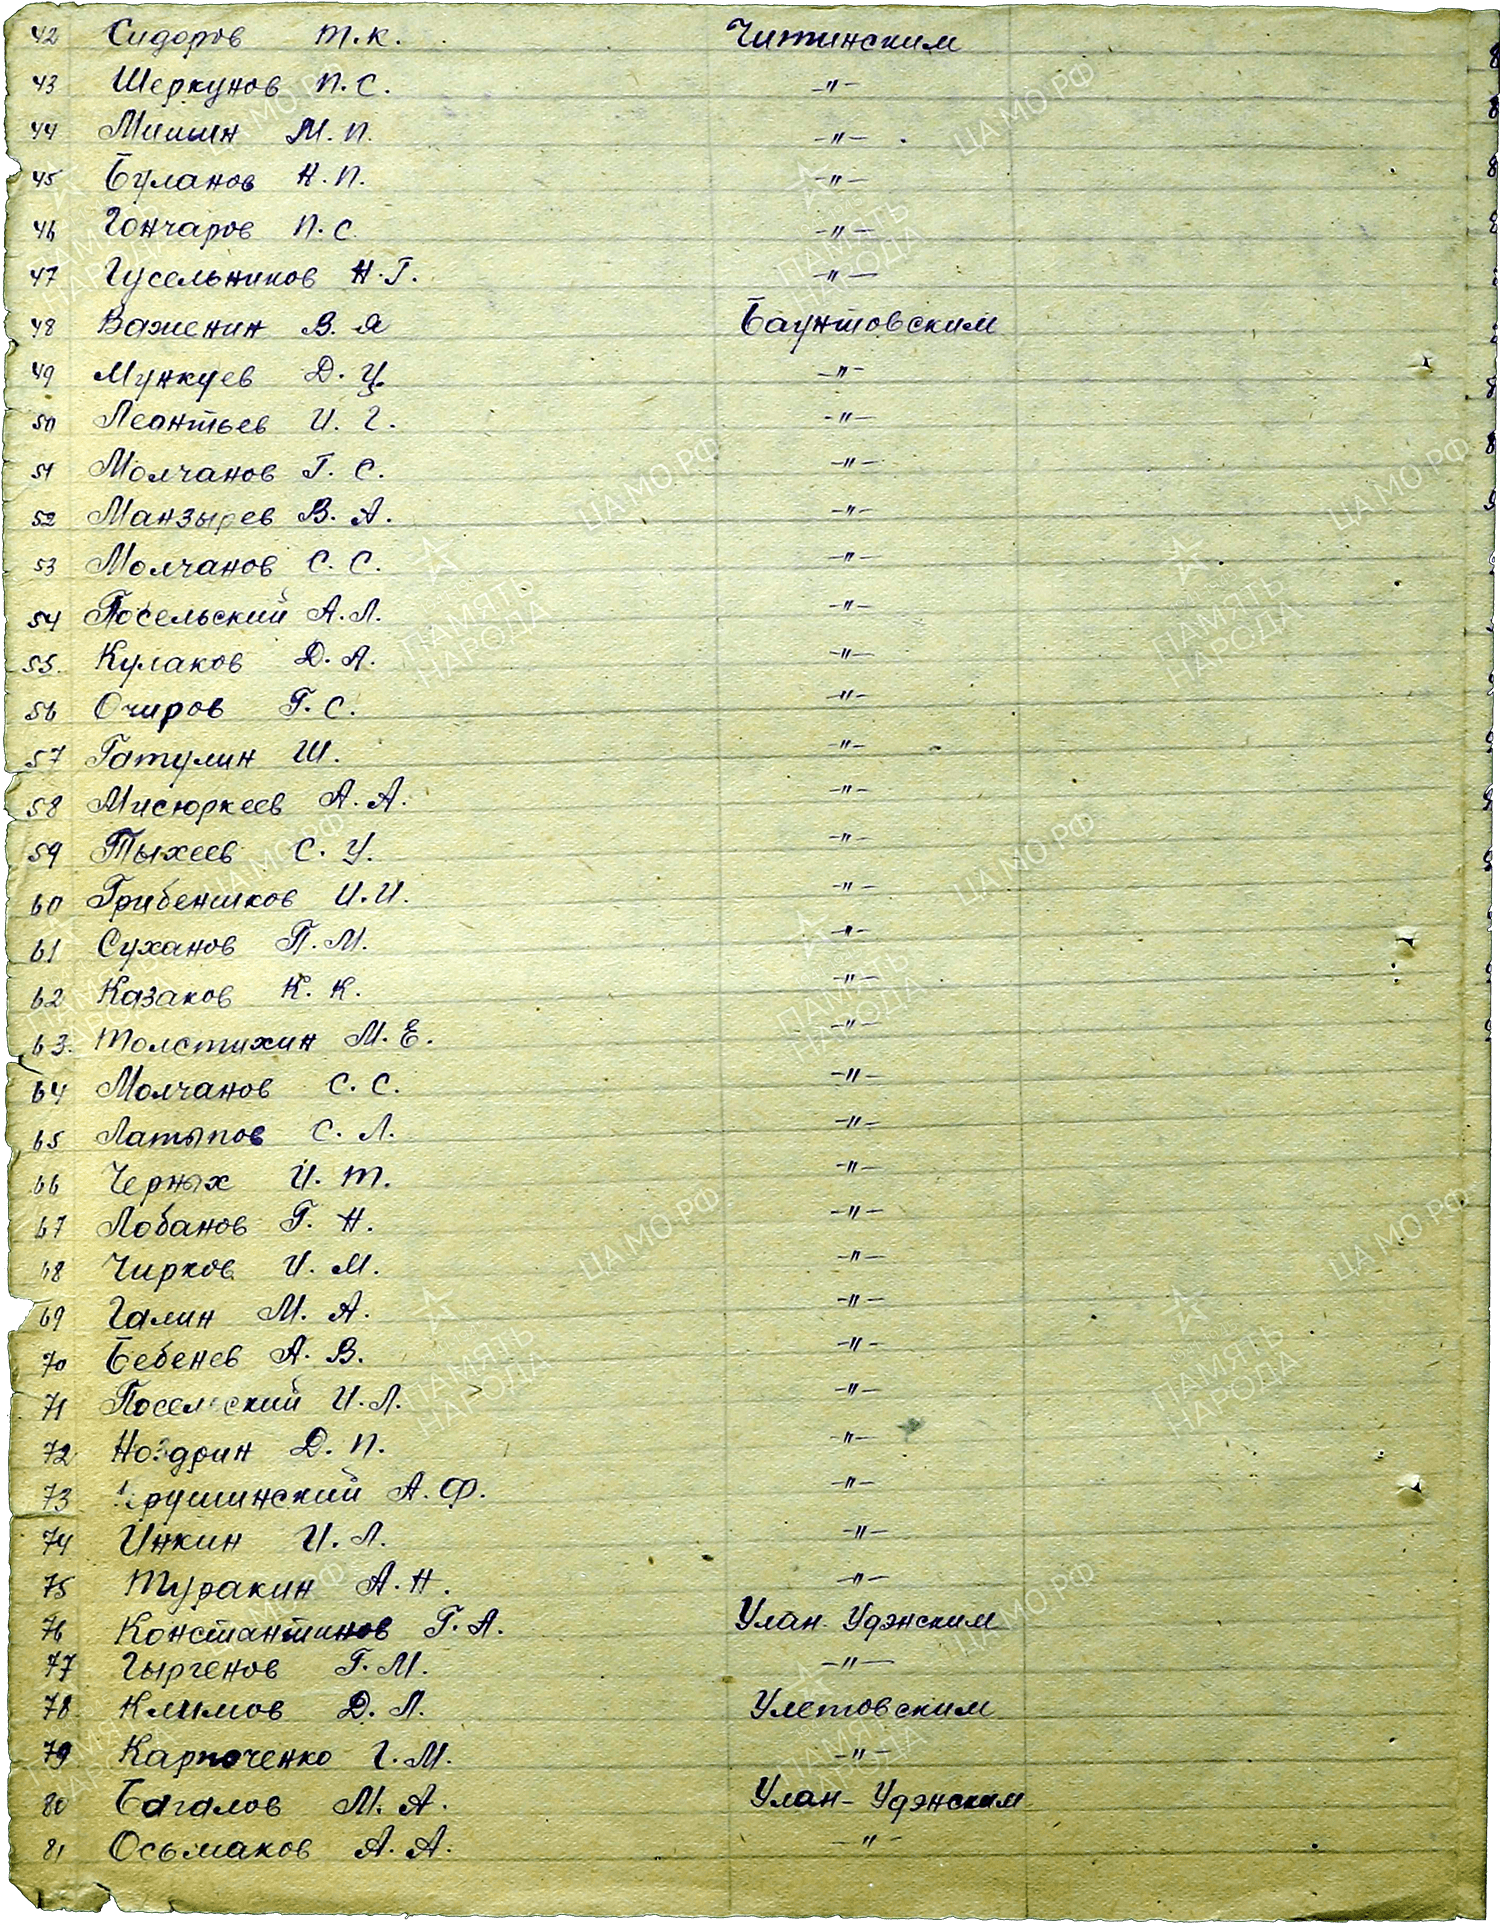 42 Сидоров Т.К. Читинским
43 Шеркунов П.С. -"-
44 Мишин М.П. -"-
45 Буланов Н.П. -"-
46 Гончаров П.С. -"-
47 Гусельников Н.Г. -"-
48 Важенин В.Я Баунтовским
49 Мункуев Д.Ц. -"-
50 Леонтьев И.Г. -"-
51 Молчанов Г.С. -"-
52 Манзырев В.А. -"-
53 Молчанов С.С. -"-
54 Посельский А.Л. -"-
55. Кулаков Д.А. -"-
56 Очиров Г.С. -"-
57 Гатулин Ш. -"-
58 Мисюркеев А.А. -"-
59 Тыхеев С.У. -"-
60 Грибеншков И.И. -"-
61 Суханов П.М. -"-
62 Казаков К.К. -"-
63. Толстихин М.Е. -"-
64 Молчанов С.С. -"-
65 Латыпов С.Л. -"-
66 Черных И.Т. -"-
67 Лобанов Г.Н. -"-
68 Чирков И.М. -"-
69 Галин М.А. -"-
70 Бебенев А.В. -"-
71 Посельский И.Л. -"-
72 Ноздрин Д.П. -"-
73 А.Ф. -"-
74 Инкин И.Л. -"-
75 Туракин А.Н. -"-
76 Константинов Г.А. Улан-Удэнским
77 Гыргенов Г.М. -"-
78 Климов Д.Л. Улетовским
79 Карпоченко Г.М. -"-
80 Багалов М.А. Улан-Удэнским
81 Осьмаков А.А. -"-
ЦАМО.РФ
ПАМЯТЬ
НАРОДА